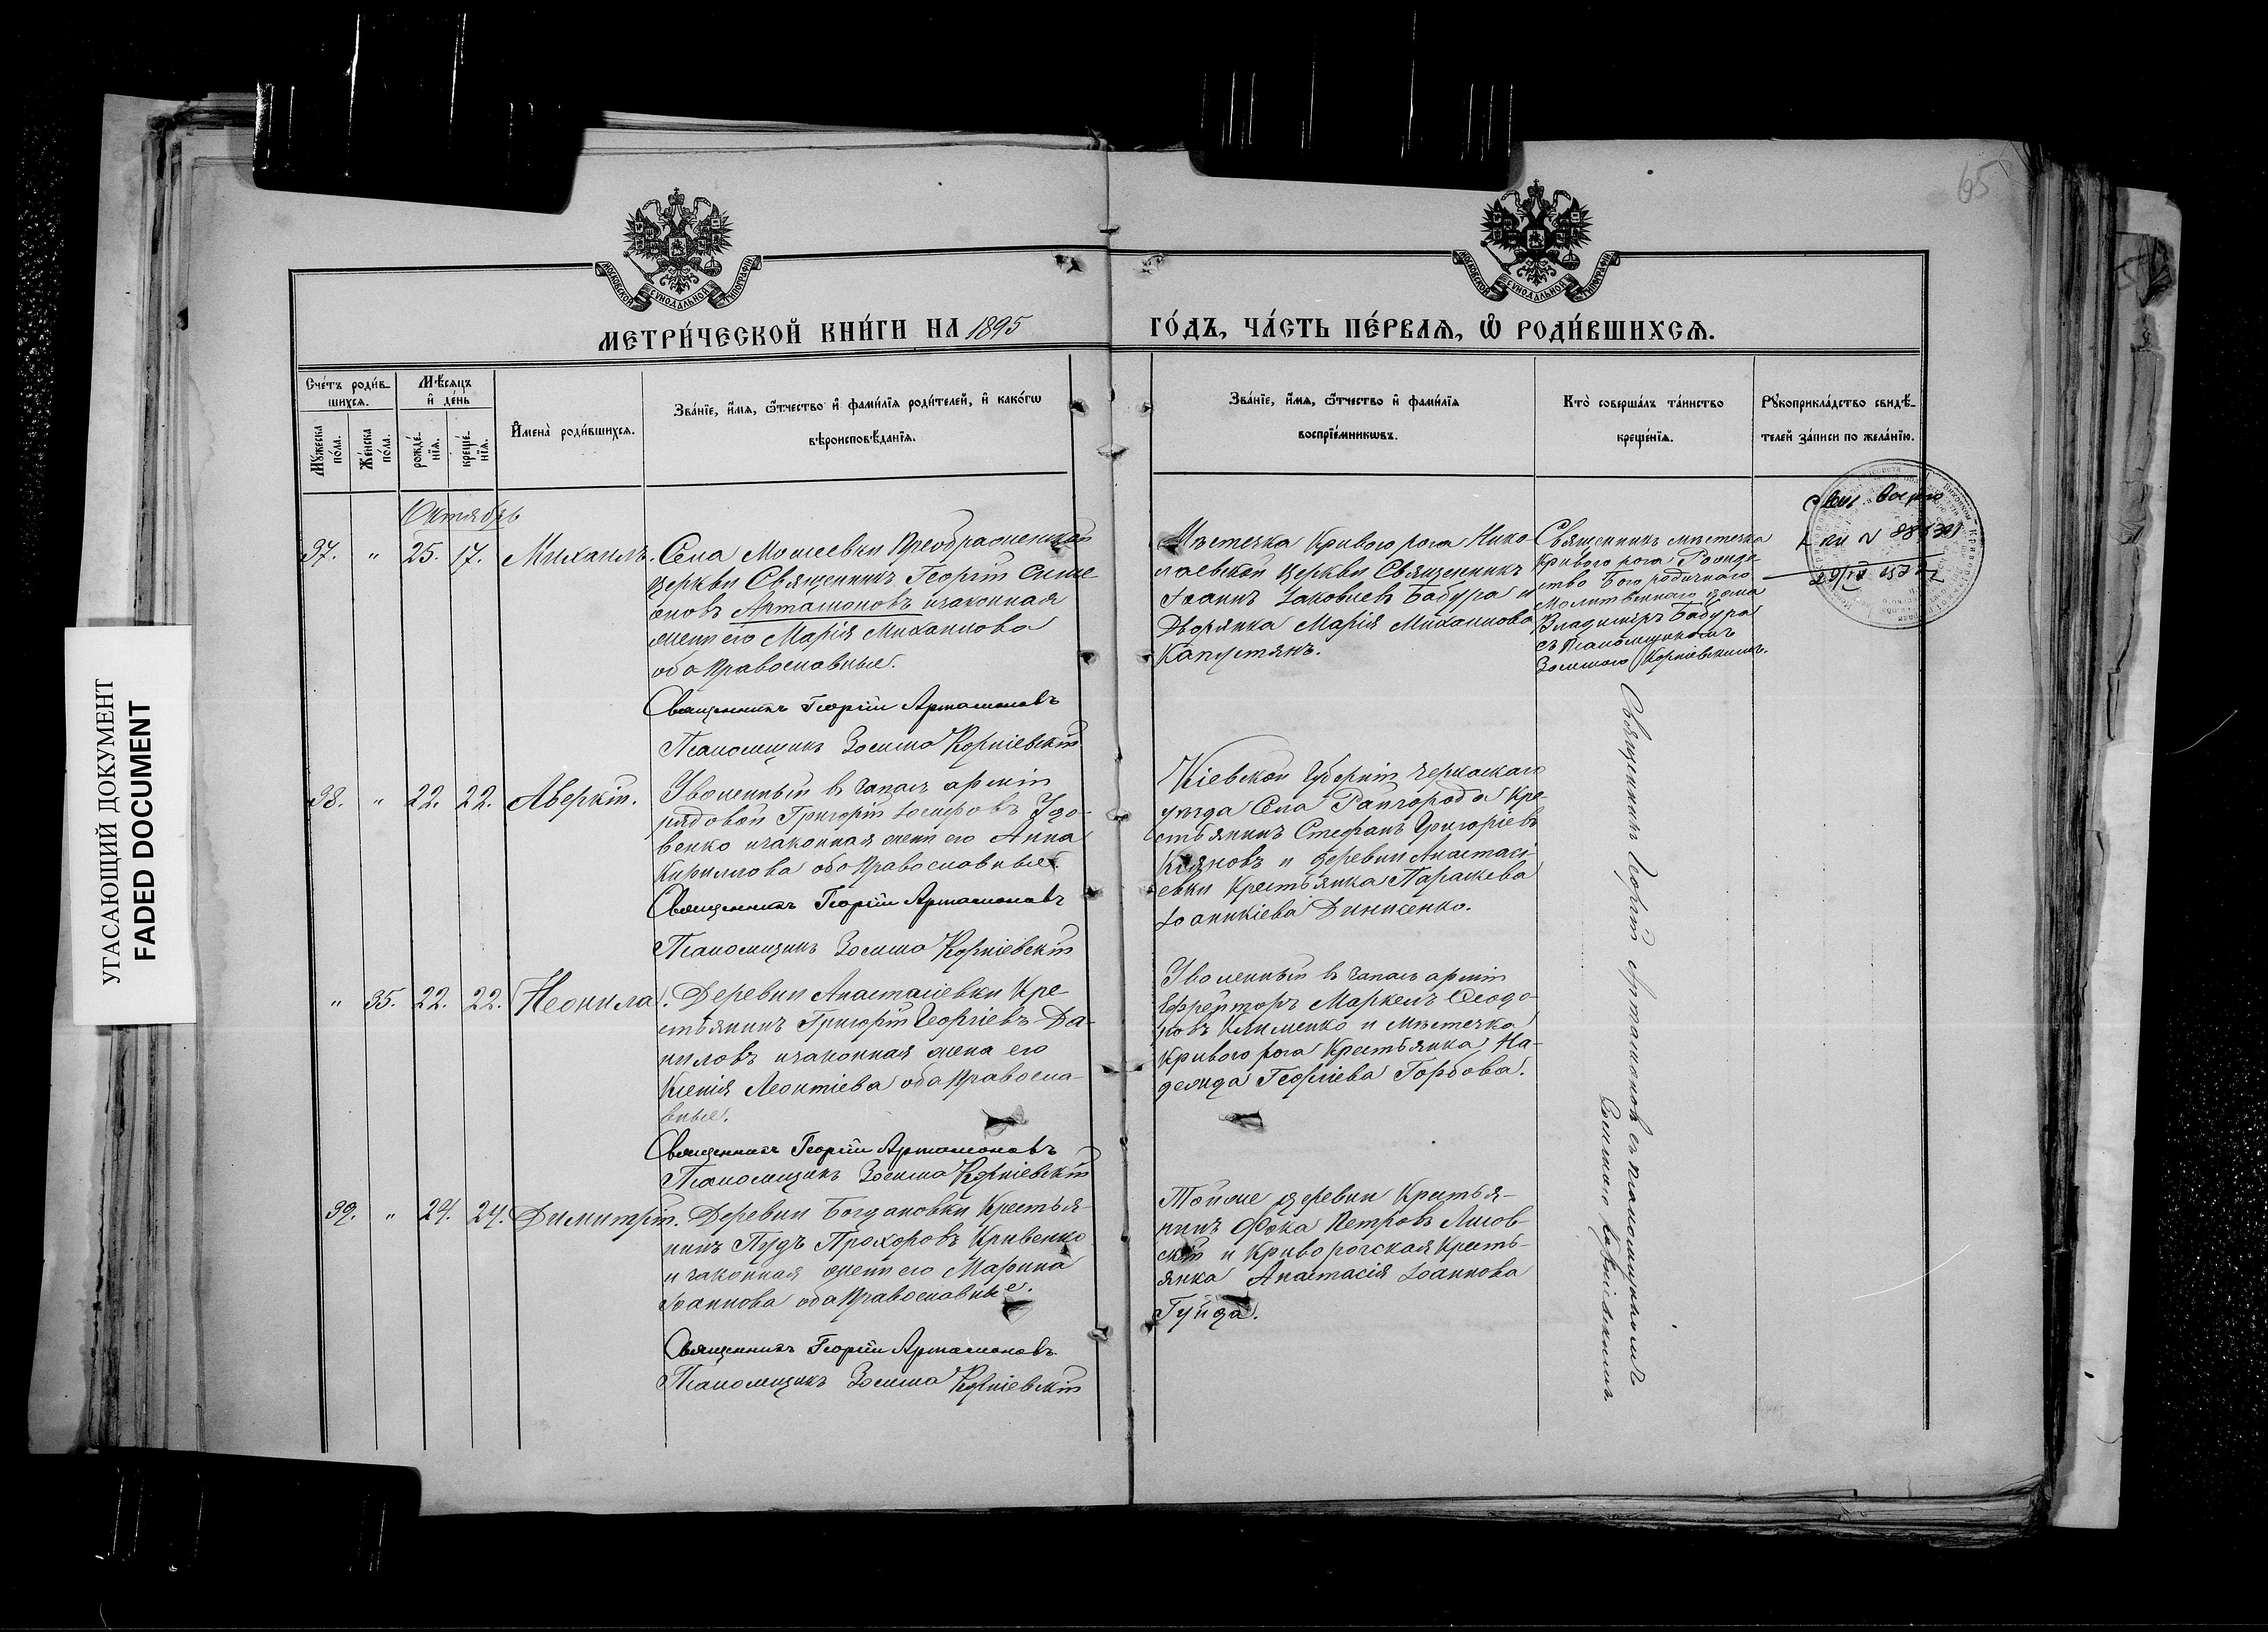 65
МОСКОВСКОЙ СУНОДАЛЬНОЙ ТИПОГРАФІИ
МОСКОВСКОЙ СУНОДАЛЬНОЙ ТИПОГРАФІИ
МЕТРИ́ЧЕСКОЙ КНИ́ГИ НА 1895
ГО́ДЪ, ЧА́СТЬ ПЕ́РВАѦ, Ѿ РОДИ́ВШИХСѦ.
Сче́тъ роди́в-
шихсѧ.
Мѣ́сяцъ
и де́нь
Мꙋ́жеска
по́ла.
Же́нска
по́ла.
рожде́-
нїѧ.
креще́-
нїѧ.
Имена̀ роди́вшихсѧ.
Зва́нїе, и́мѧ, ѻ҆́тчество и фами́лїѧ роди́телей, и како́гѡ
вѣроисповѣ́данїѧ.
Зва́нїе, и́мѧ, ѻ҆́тчество и фами́лїѧ
воспрїе́мникѡвъ.
Кто̀ соверша́лъ та́инство
креще́нїѧ.
Рꙋкоприкла́дство свидѣ́-
телей за́писи по жела́нїю.
Октябрь
37. " 25. 17. Михаилъ. Села Моисеевки Преображенской
церкви Священникъ Георгій Симе
оновъ Артамоновъ изаконная
жена его Марія Михаилова
оба Православные.
Священникъ Георгій Артамоновъ
Псаломщикъ Зосима Корніевскій
Мѣстечка Кривого рога Нико
лаевской церкви Священникъ
Іоаннъ Іаковлевъ Бадура и
Дворянка Марія Михаилова
Капустянъ.
Священникъ мѣстечка
Кривого рога, Рожде-
ство Богородичнаго
Молитвеннаго дома
Владиміръ Бадура
съ Псаломщикомъ
Зосимою Корніевскимъ.
38. " 22. 22. Аверкій. Уволенный въ запасъ арміи
рядовой Григорій Іосифовъ Удо-
венко изаконная жена его Анна
Кириллова оба Православные
Священникъ Георгій Артамоновъ
Псаломщикъ Зосима Корніевскій
Кіевской Губерніи Черкаскаго
уѣзда Села Райгорода Кре-
стьянинъ Стефанъ Григоріевъ
и деревни Анастасі-
евки Крестьянка Параскева
Іоаникіева Динисенко.
" 35. 22. 22. Неонила. Деревни Анастасіевки Кре-
стьянинъ Григорій Георгіевъ Да-
ниловъ изаконная жена его
Ксенія Леонтіева оба Правосла-
вные.
Священникъ Георгій Артамоновъ
Псаломщикъ Зосима Корніевскій
Уволенный въ запасъ арміи
Ефрейторъ Маркелъ Ѳеодо-
ровъ Клименко и мѣстечка
Кривого рога Крестьянка На-
дежда Георгіева Горбова.
39. " 24. 24. Димитрій. Деревни Богдановки Крестья-
нинъ Пудъ Прохоровъ Кривенко
и законная жена его Марина
Іоаннова оба Православные.
Священникъ Георгій Артамоновъ
Псаломщикъ Зосима Корніевскій
Тойже деревни Крестья-
нинъ Фока Петровъ Лисов-
скій и Криворогская Кресть-
янка Анастасія Іоаннова
Гуйда.
Священникъ Георгій Артамоновъ съ псаломщикомъ
Зосимою Корніевскимъ
УГАСАЮЩИЙ ДОКУМЕНТ
FADED DOCUMENT